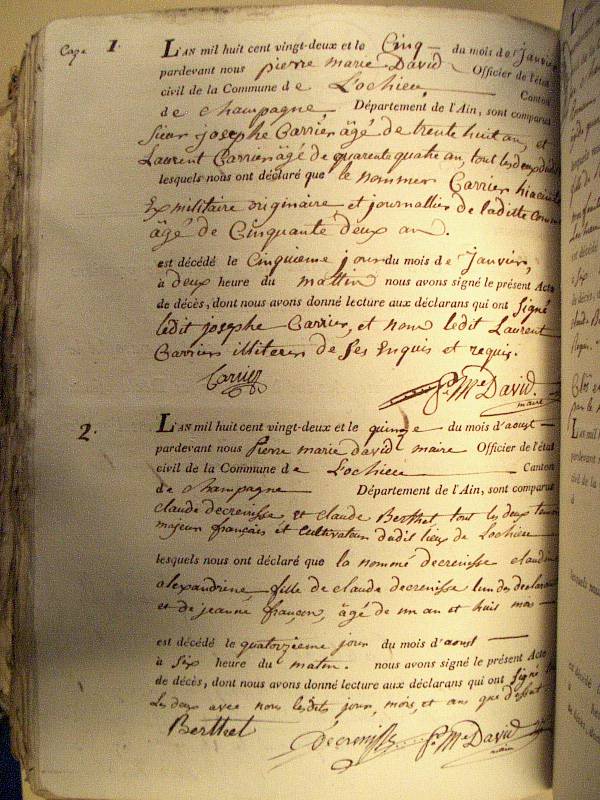 1.
L'AN mil huit cent vingt-deux et le Cinq du mois de Janvier
pardevant nous pierre marie David Officier de l'état
civil de la Commune de Lochieu Canton
de champagne, Département de l'Ain, sont comparus
Sieur josephe Carrier âgé de trente huit an, et
Laurent Carrier âgé de quarente quatre an, tout les deux
lesquels nous ont déclaré que le nommer Carrier hiacinte
Ex militaire originaire et journallier de laditte
âgé de Cinquante deux an.
est décédé le Cinquieme jour du mois de Janvier,
à deux heure du mattin nous avons signé le présent Acte
de décès, dont nous avons donné lecture aux déclarans qui ont Signé
ledit josephe Carrier, et nom ledit Laurent
Carrier illiteres de Ses Enquis et requis.
Carrier
Pre Me David.
maire
2.
L'AN mil huit cent vingt-deux et le quinze du mois d'aoust
pardevant nous Pierre marie david maire Officier de l'état
civil de la Commune de Lochieu Canton
de champagne Département de l'Ain, sont comparus
claude decrenisse et claude Berthet tout les deux
majeur français et cultivateur dudit lieux de Lochieu
lesquels nous ont déclaré que la nommé decrenisse
alexandrine fille de claude decrenisse lun des
et de jeanne françon, âgé de un an et huit mois
est décédé le quatorzieme jour du mois d'aoust
à six heure du matin. nous avons signé le présent Acte
de décès, dont nous avons donné lecture aux déclarans qui ont signé
Les deux avec nous lesdits jour, mois, et an que dessus
Berthet
decrenisse
Pre Me David
maire